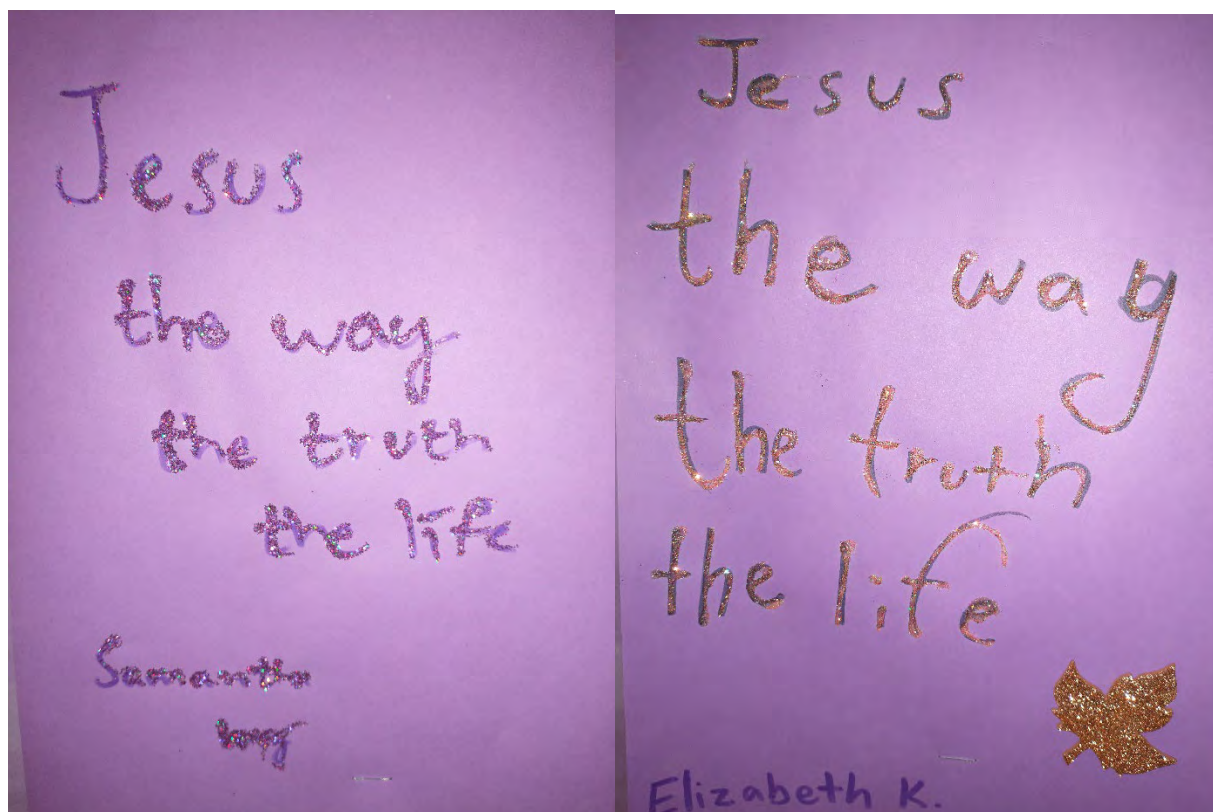 Jesus
the way
the truth
the life
Samantha
Jesus
the way
the truth
the life
Elizabeth K.